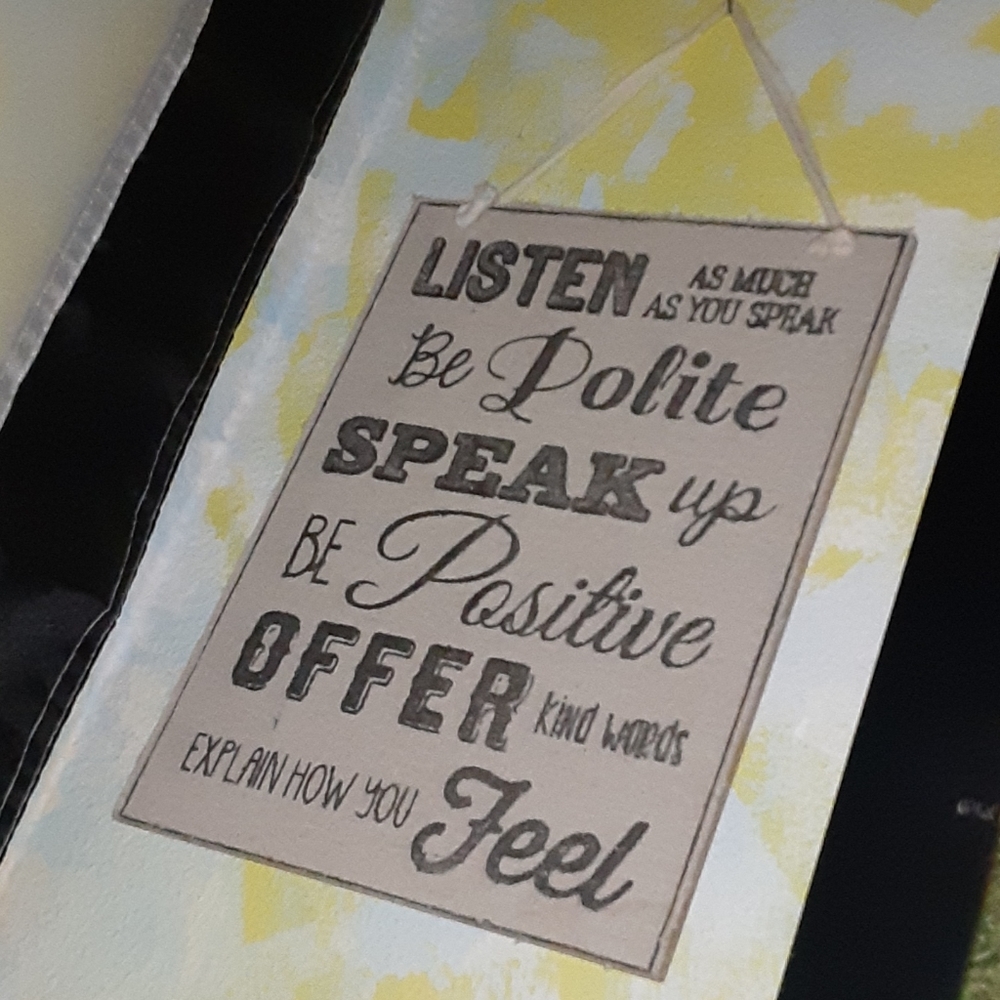 LISTEN AS MUCH AS YOU SPEAK
Be Polite
SPEAK up
BE Positive
OFFER kind words
EXPLAIN HOW YOU Feel